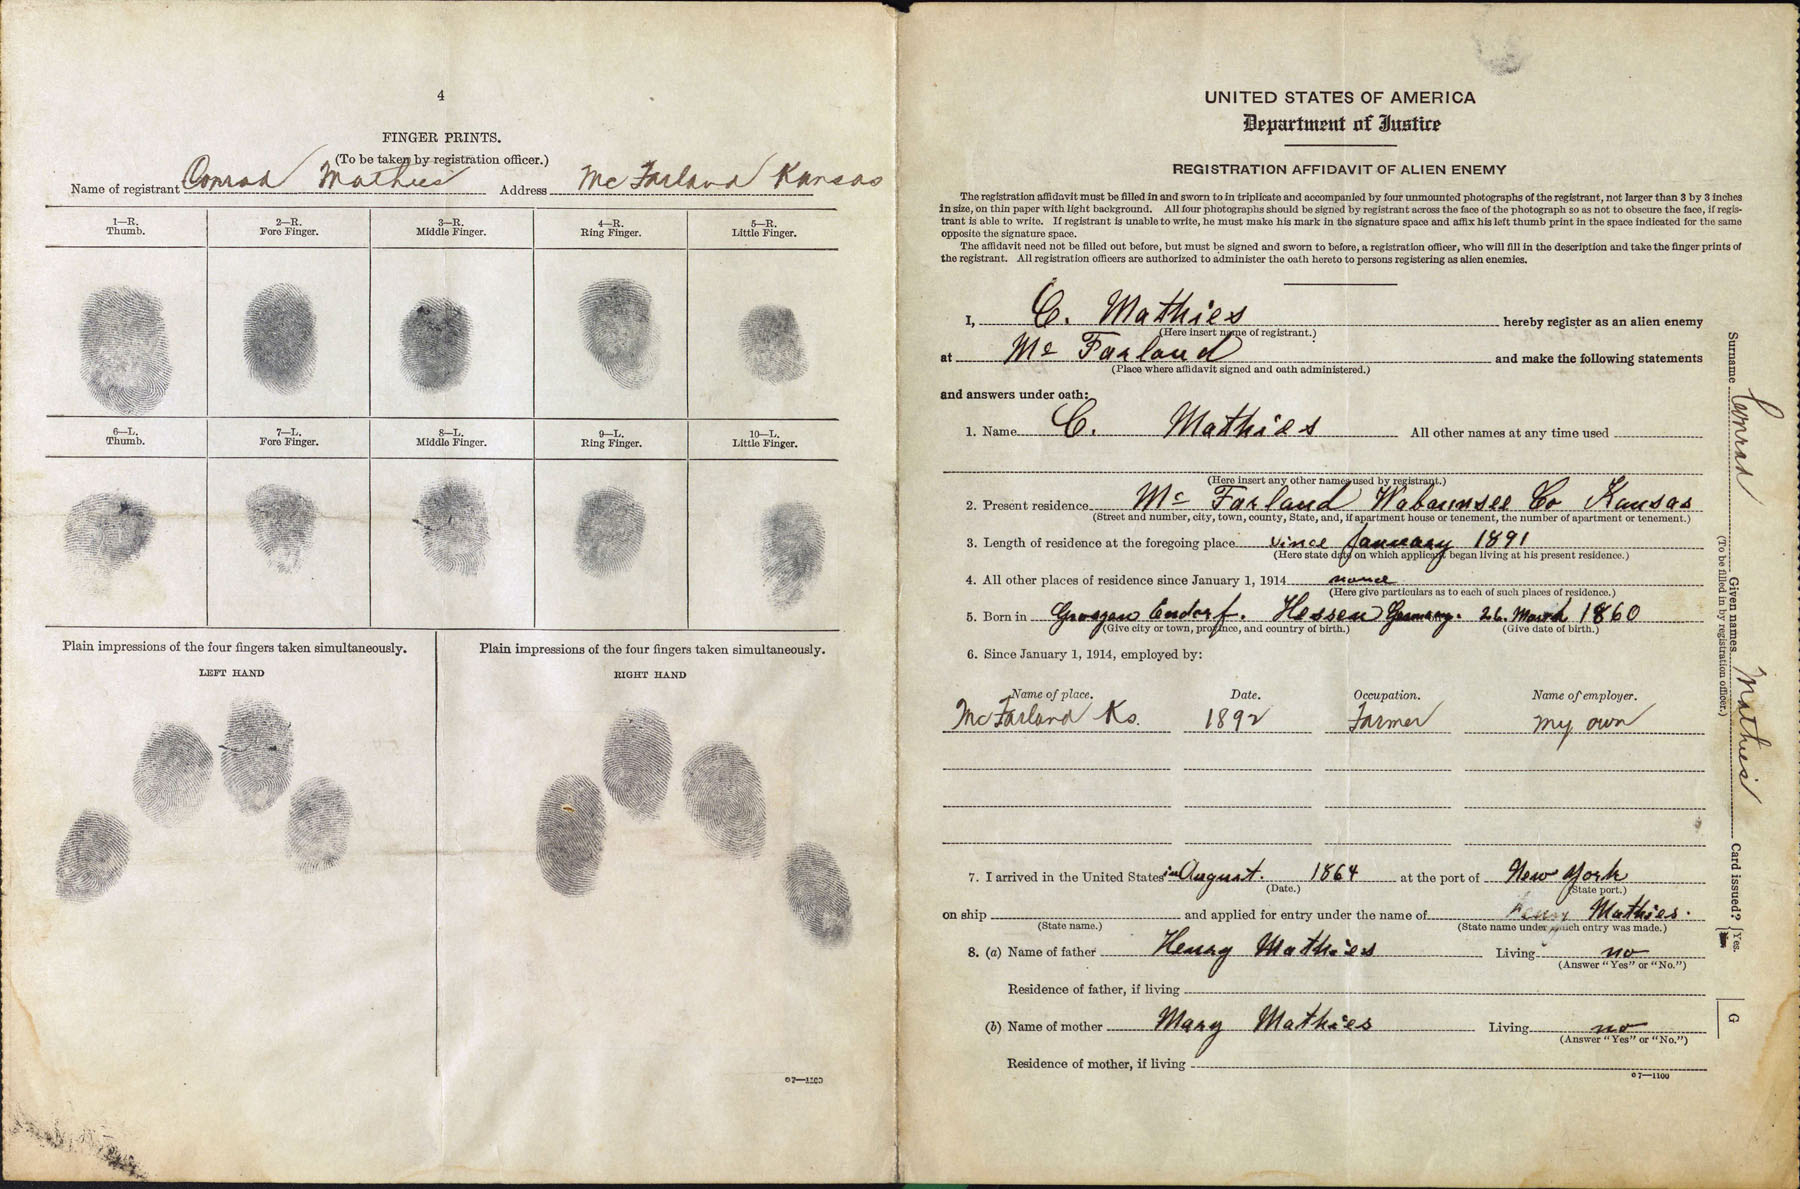 4
FINGER PRINTS.
(To be taken by registration officer.)
Name of registrant Conrad Mathies Address Mc Farland Kansas
1—R. 2—R. 3—R. 4—R. 5—R.
Thumb. Fore Finger. Middle Finger. Ring Finger. Little Finger.
6—L. 7—L. 8—L. 9—L. 10—L.
Thumb. Fore Finger. Middle Finger. Ring Finger. Little Finger.
Plain impressions of the four fingers taken simultaneously. Plain impressions of the four fingers taken simultaneously.
LEFT HAND RIGHT HAND
07—1100
UNITED STATES OF AMERICA
Department of Justice
REGISTRATION AFFIDAVIT OF ALIEN ENEMY
The registration affidavit must be filled in and sworn to in triplicate and accompanied by four unmounted photographs of the registrant, not larger than 3 by 3 inches
in size, on thin paper with light background. All four photographs should be signed by registrant across the face of the photograph so as not to obscure the face, if regis-
trant is able to write. If registrant is unable to write, he must make his mark in the signature space and affix his left thumb print in the space indicated for the same
opposite the signature space.
The affidavit need not be filled out before, but must be signed and sworn to before, a registration officer, who will fill in the description and take the finger prints of
the registrant. All registration officers are authorized to administer the oath hereto to persons registering as alien enemies.
I, C. Mathies hereby register as an alien enemy
(Here insert name of registrant.)
at Mc Farland and make the following statements
(Place where affidavit signed and oath administered.)
and answers under oath:
1. Name C. Mathies All other names at any time used
(Here insert any other names used by registrant.)
2. Present residence Mc Farland Wabaunsee Co Kansas
(Street and number, city, town, county, State, and, if apartment house or tenement, the number of apartment or tenement.)
3. Length of residence at the foregoing place since January 1891
(Here state date on which applicant began living at his present residence.)
4. All other places of residence since January 1, 1914 none
(Here give particulars as to each of such places of residence.)
5. Born in Hessen Germany. 26. March 1860
(Give city or town, province, and country of birth.) (Give date of birth.)
6. Since January 1, 1914, employed by:
Name of place. Date. Occupation. Name of employer.
Mc Farland Ks. 1892 Farmer my own
7. I arrived in the United States in August. 1864 at the port of New York
(Date.) (State port.)
on ship and applied for entry under the name of Henry Mathies.
(State name.) (State name under which entry was made.)
8. (a) Name of father Henry Mathies Living no
(Answer "Yes" or "No.")
Residence of father, if living
(b) Name of mother Mary Mathies Living no
(Answer "Yes" or "No.")
Residence of mother, if living
07—1100
Surname Conrad Given names Mathies Card issued? Yes.
(To be filled in by registration officer.)
G